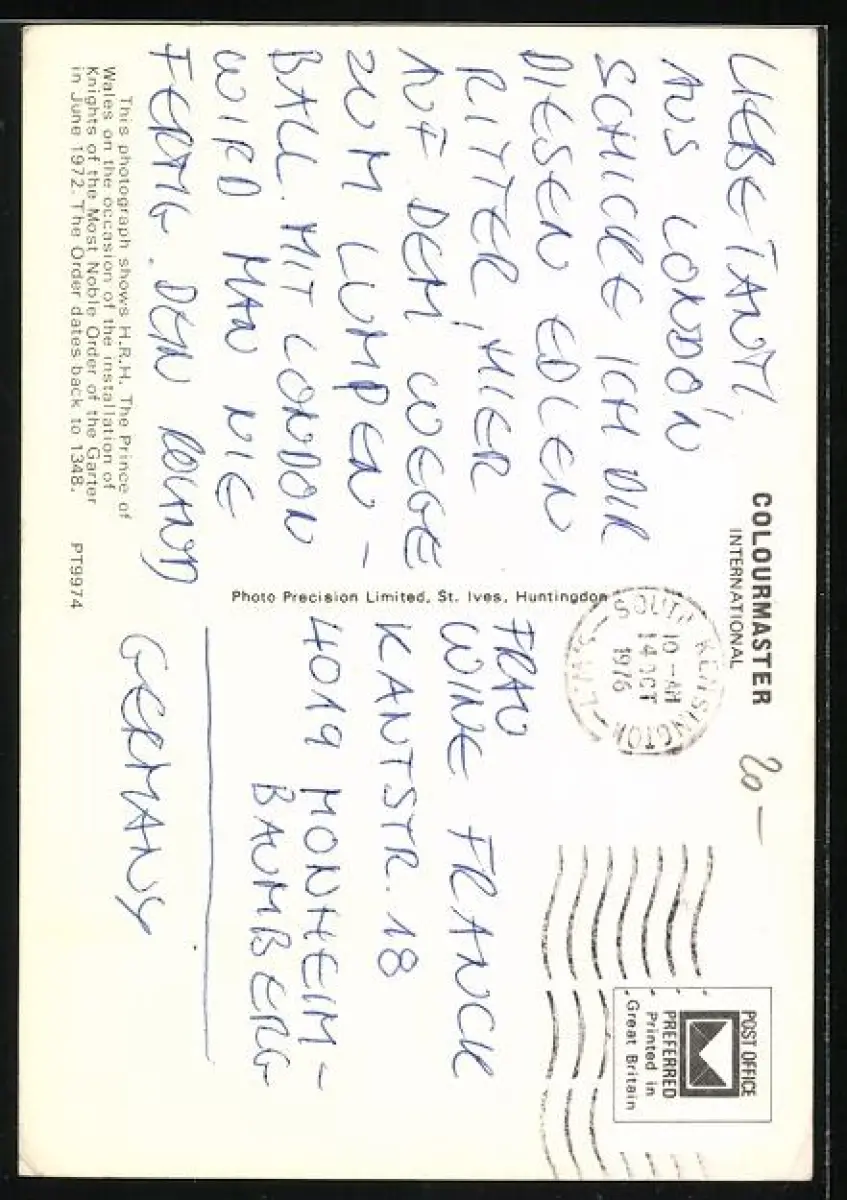 COLOURMASTER
INTERNATIONAL
20 —
POST OFFICE
PREFERRED
Printed in
Great Britain
SOUTH KENSINGTON
10 - AM
14 OCT
1976
LIEBE TANTI,
AUS LONDON
SCHICKE ICH DIR
DIESEN EDLEN
RITTER, HIER
AUF DEM WEGE
ZUM LUMPEN-
BALL. MIT LONDON
WIRD MAN NIE
FERTIG. DEIN ROLAND
This photograph shows H.R.H. The Prince of
Wales on the occasion of the installation of
Knights of the Most Noble Order of the Garter
in June 1972. The Order dates back to 1348.
PT9974
Photo Precision Limited, St. Ives, Huntingdon
FRAU
WINE FRANCK
KANTSTR. 18
4019 MONHEIM-
BAUMBERG
GERMANY